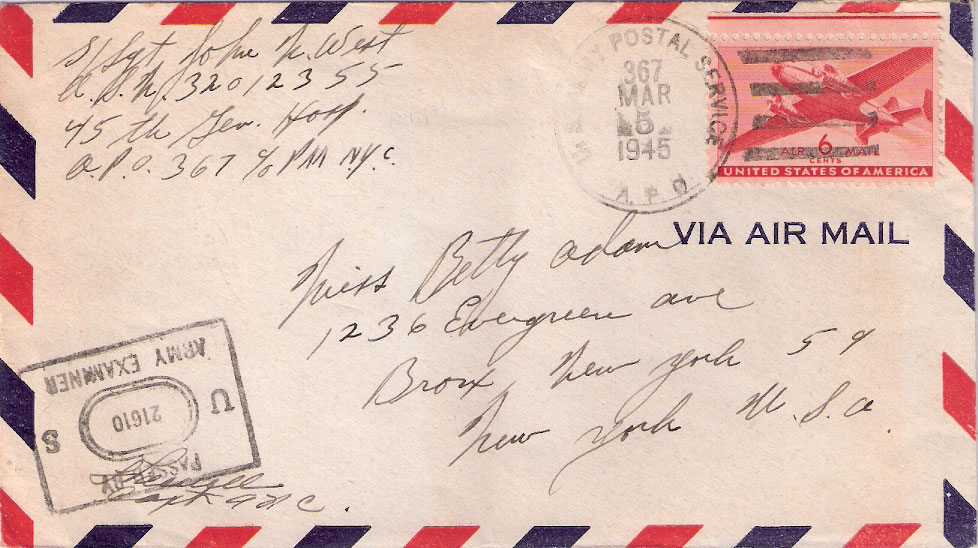 S/Sgt John N. West
A.S.N. 32012355
45th Gen. Hosp.
A.P.O. 367 c/o PM N.Y.C.
POSTAL SERVICE
367
MAR
5
1945
A.P.O.
AIR 6 MAIL
CENTS
UNITED STATES OF AMERICA
VIA AIR MAIL
Miss Betty Adam
1236 Evergreen ave
Bronx New York 59
New York U.S.a
PASSED BY
U S
21610
ARMY EXAMINER
Capt